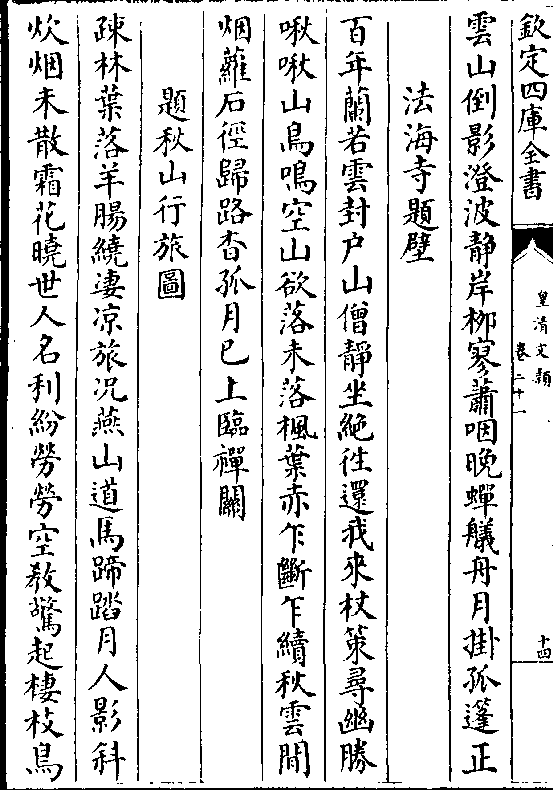 欽定四庫全書
皇清文類
卷二十一
十四
雲山倒影澄波靜岸柳寥蕭咽晚蟬艤舟月掛孤篷正
法海寺題壁
百年蘭若雲封户山僧靜坐絶徃還我來杖策尋幽勝
啾啾山鳥鳴空山欲落未落楓葉赤乍斷乍續秋雲間
烟蘿石徑歸路杳孤月已上臨禪關
題秋山行旅圖
疎林葉落羊腸繞淒凉旅况燕山道馬蹄踏月人影科
炊烟未散霜花曉世人名利紛勞勞空教驚起棲枝鳥